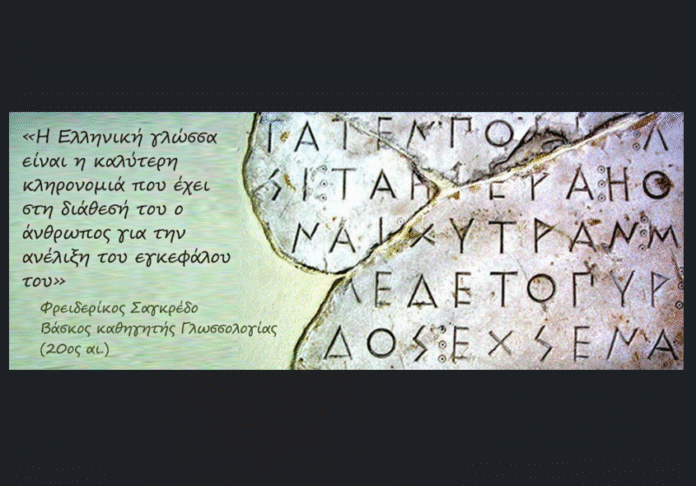 «Η Ελληνική γλώσσα
είναι η καλύτερη
κληρονομιά που έχει
στη διάθεσή του ο
άνθρωπος για την
ανέλιξη του εγκεφάλου
του»
Φρειδερίκος Σαγκρέδο
Βάσκος καθηγητής Γλωσσολογίας
(20ος αι.)
ΑΤΕΝΠΟ
ΤΡΑΝ
ΕΔΕΤΟ
ΔΟΣ⋮ΕΧΣΕΝΑ